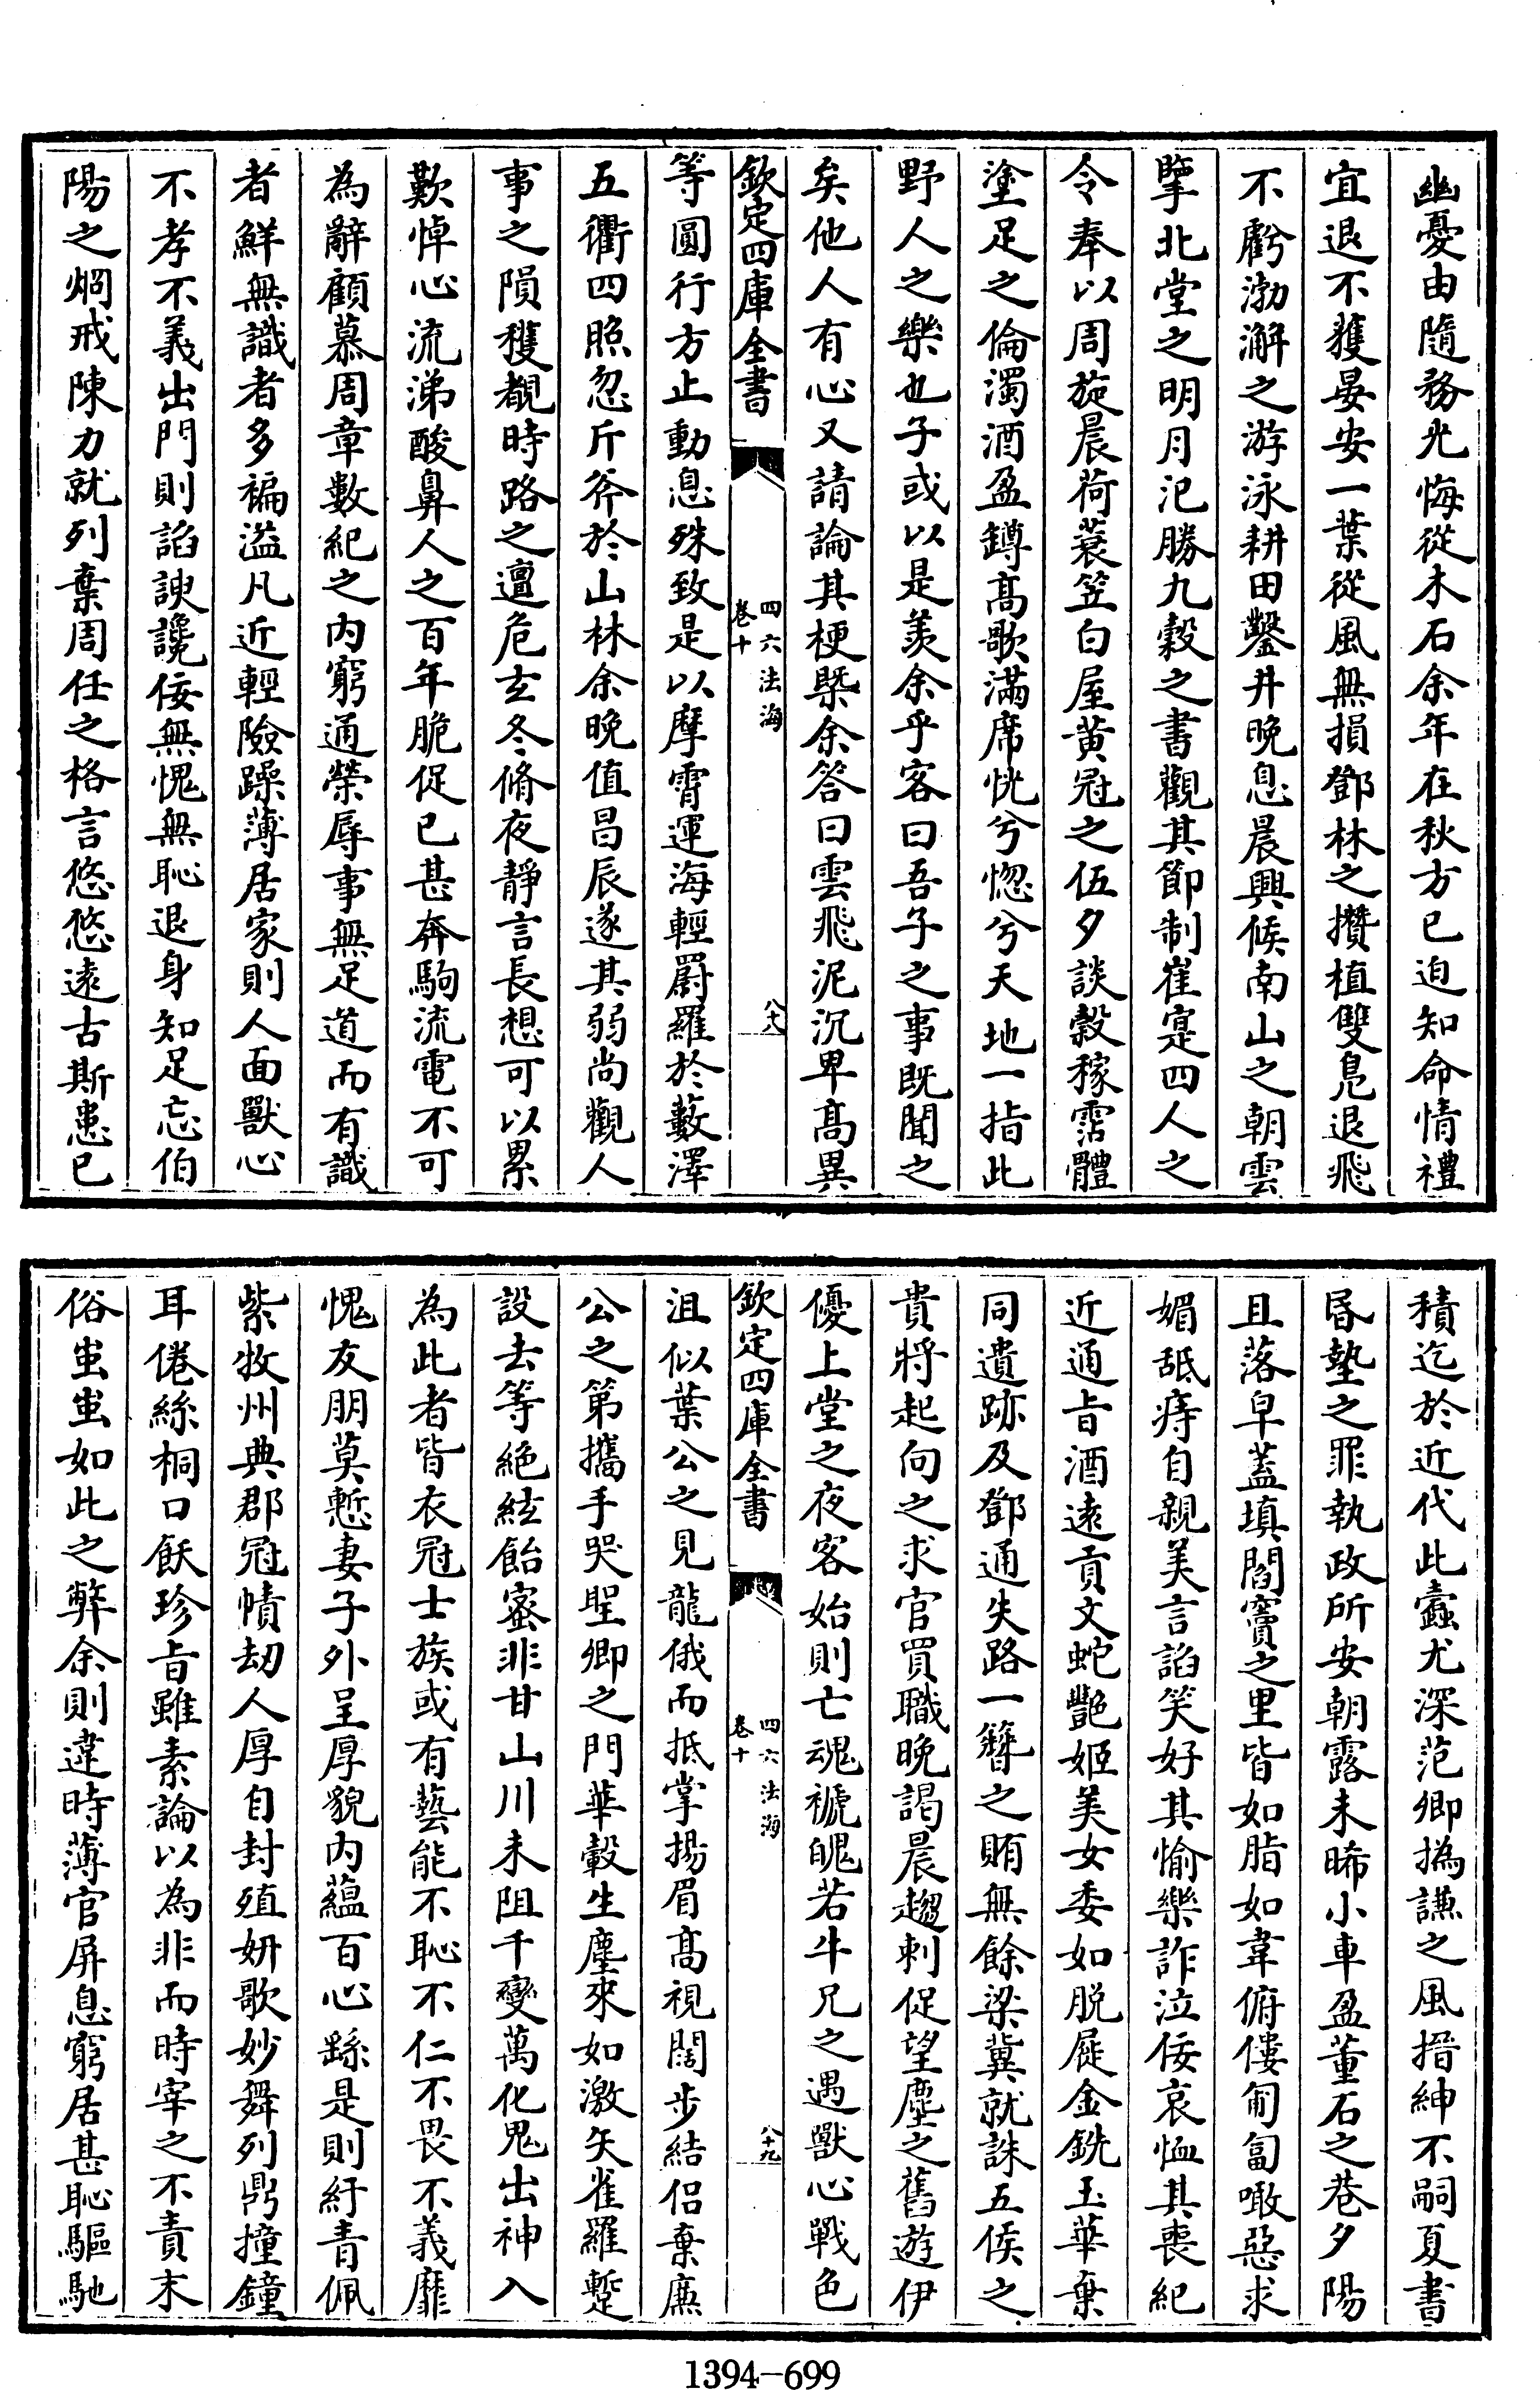 幽憂由隨務光悔從木石余年在秋方已迫知命情禮
宜退不獲晏安一葉從風無損鄧林之攢植雙鳧退飛
不虧渤澥之游泳耕田鑿井晚息晨興候南山之朝雲
擥北堂之明月氾勝九穀之書觀其節制崔寔四人之
令奉以周旋晨荷蓑笠白屋黃冠之伍夕談穀稼霑體
塗足之倫濁酒盈罇高歌滿席恍兮惚兮天地一指此
野人之樂也子或以是羨余乎客曰吾子之事既聞之
矣他人有心又請論其梗槩余答曰雲飛泥沉卑高異
欽定四庫全書
四六法海
卷十
八十八
等圓行方止動息殊致是以摩霄運海輕罻羅於藪澤
五衢四照忽斤斧於山林余晚值昌辰遂其弱尚觀人
事之隕穫覩時路之邅危玄冬脩夜靜言長想可以累
歎悼心流涕酸鼻人之百年脆促已甚奔駒流電不可
為辭顧慕周章數紀之內窮通榮辱事無足道而有識
者鮮無識者多褊溢凡近輕險躁薄居家則人面獸心
不孝不義出門則諂諛讒佞無愧無恥退身知足忘伯
陽之炯戒陳力就列棄周任之格言悠悠遠古斯患已
積迄於近代此蠹尤深范卿撝謙之風搢紳不嗣夏書
昏墊之罪執政所安朝露未晞小車盈董石之巷夕陽
且落皁蓋填閻竇之里皆如脂如韋俯僂匍匐噉惡求
媚舐痔自親美言諂笑好其愉樂詐泣佞哀恤其喪紀
近通旨酒遠貢文蛇艷姬美女委如脫屣金銑玉華棄
同遺跡及鄧通失路一簪之賄無餘梁冀就誅五侯之
貴將起向之求官買職晚謁晨趨刺促望塵之舊遊伊
優上堂之夜客始則亡魂褫魄若牛兄之遇獸心戰色
欽定四庫全書
四六法海
卷十
八十九
沮似葉公之見龍俄而抵掌揚眉高視闊步結侶棄廉
公之第攜手哭聖卿之門華轂生塵來如激矢雀羅蹔
設去等絕絃飴蜜非甘山川未阻千變萬化鬼出神入
為此者皆衣冠士族或有藝能不恥不仁不畏不義靡
愧友朋莫慙妻子外呈厚貌內蘊百心繇是則紆青佩
紫牧州典郡冠幘刼人厚自封殖妍歌妙舞列鼎撞鐘
耳倦絲桐口飫珍旨雖素論以為非而時宰之不責末
俗蚩蚩如此之弊余則違時薄宦屏息窮居甚恥驅馳
1394-699